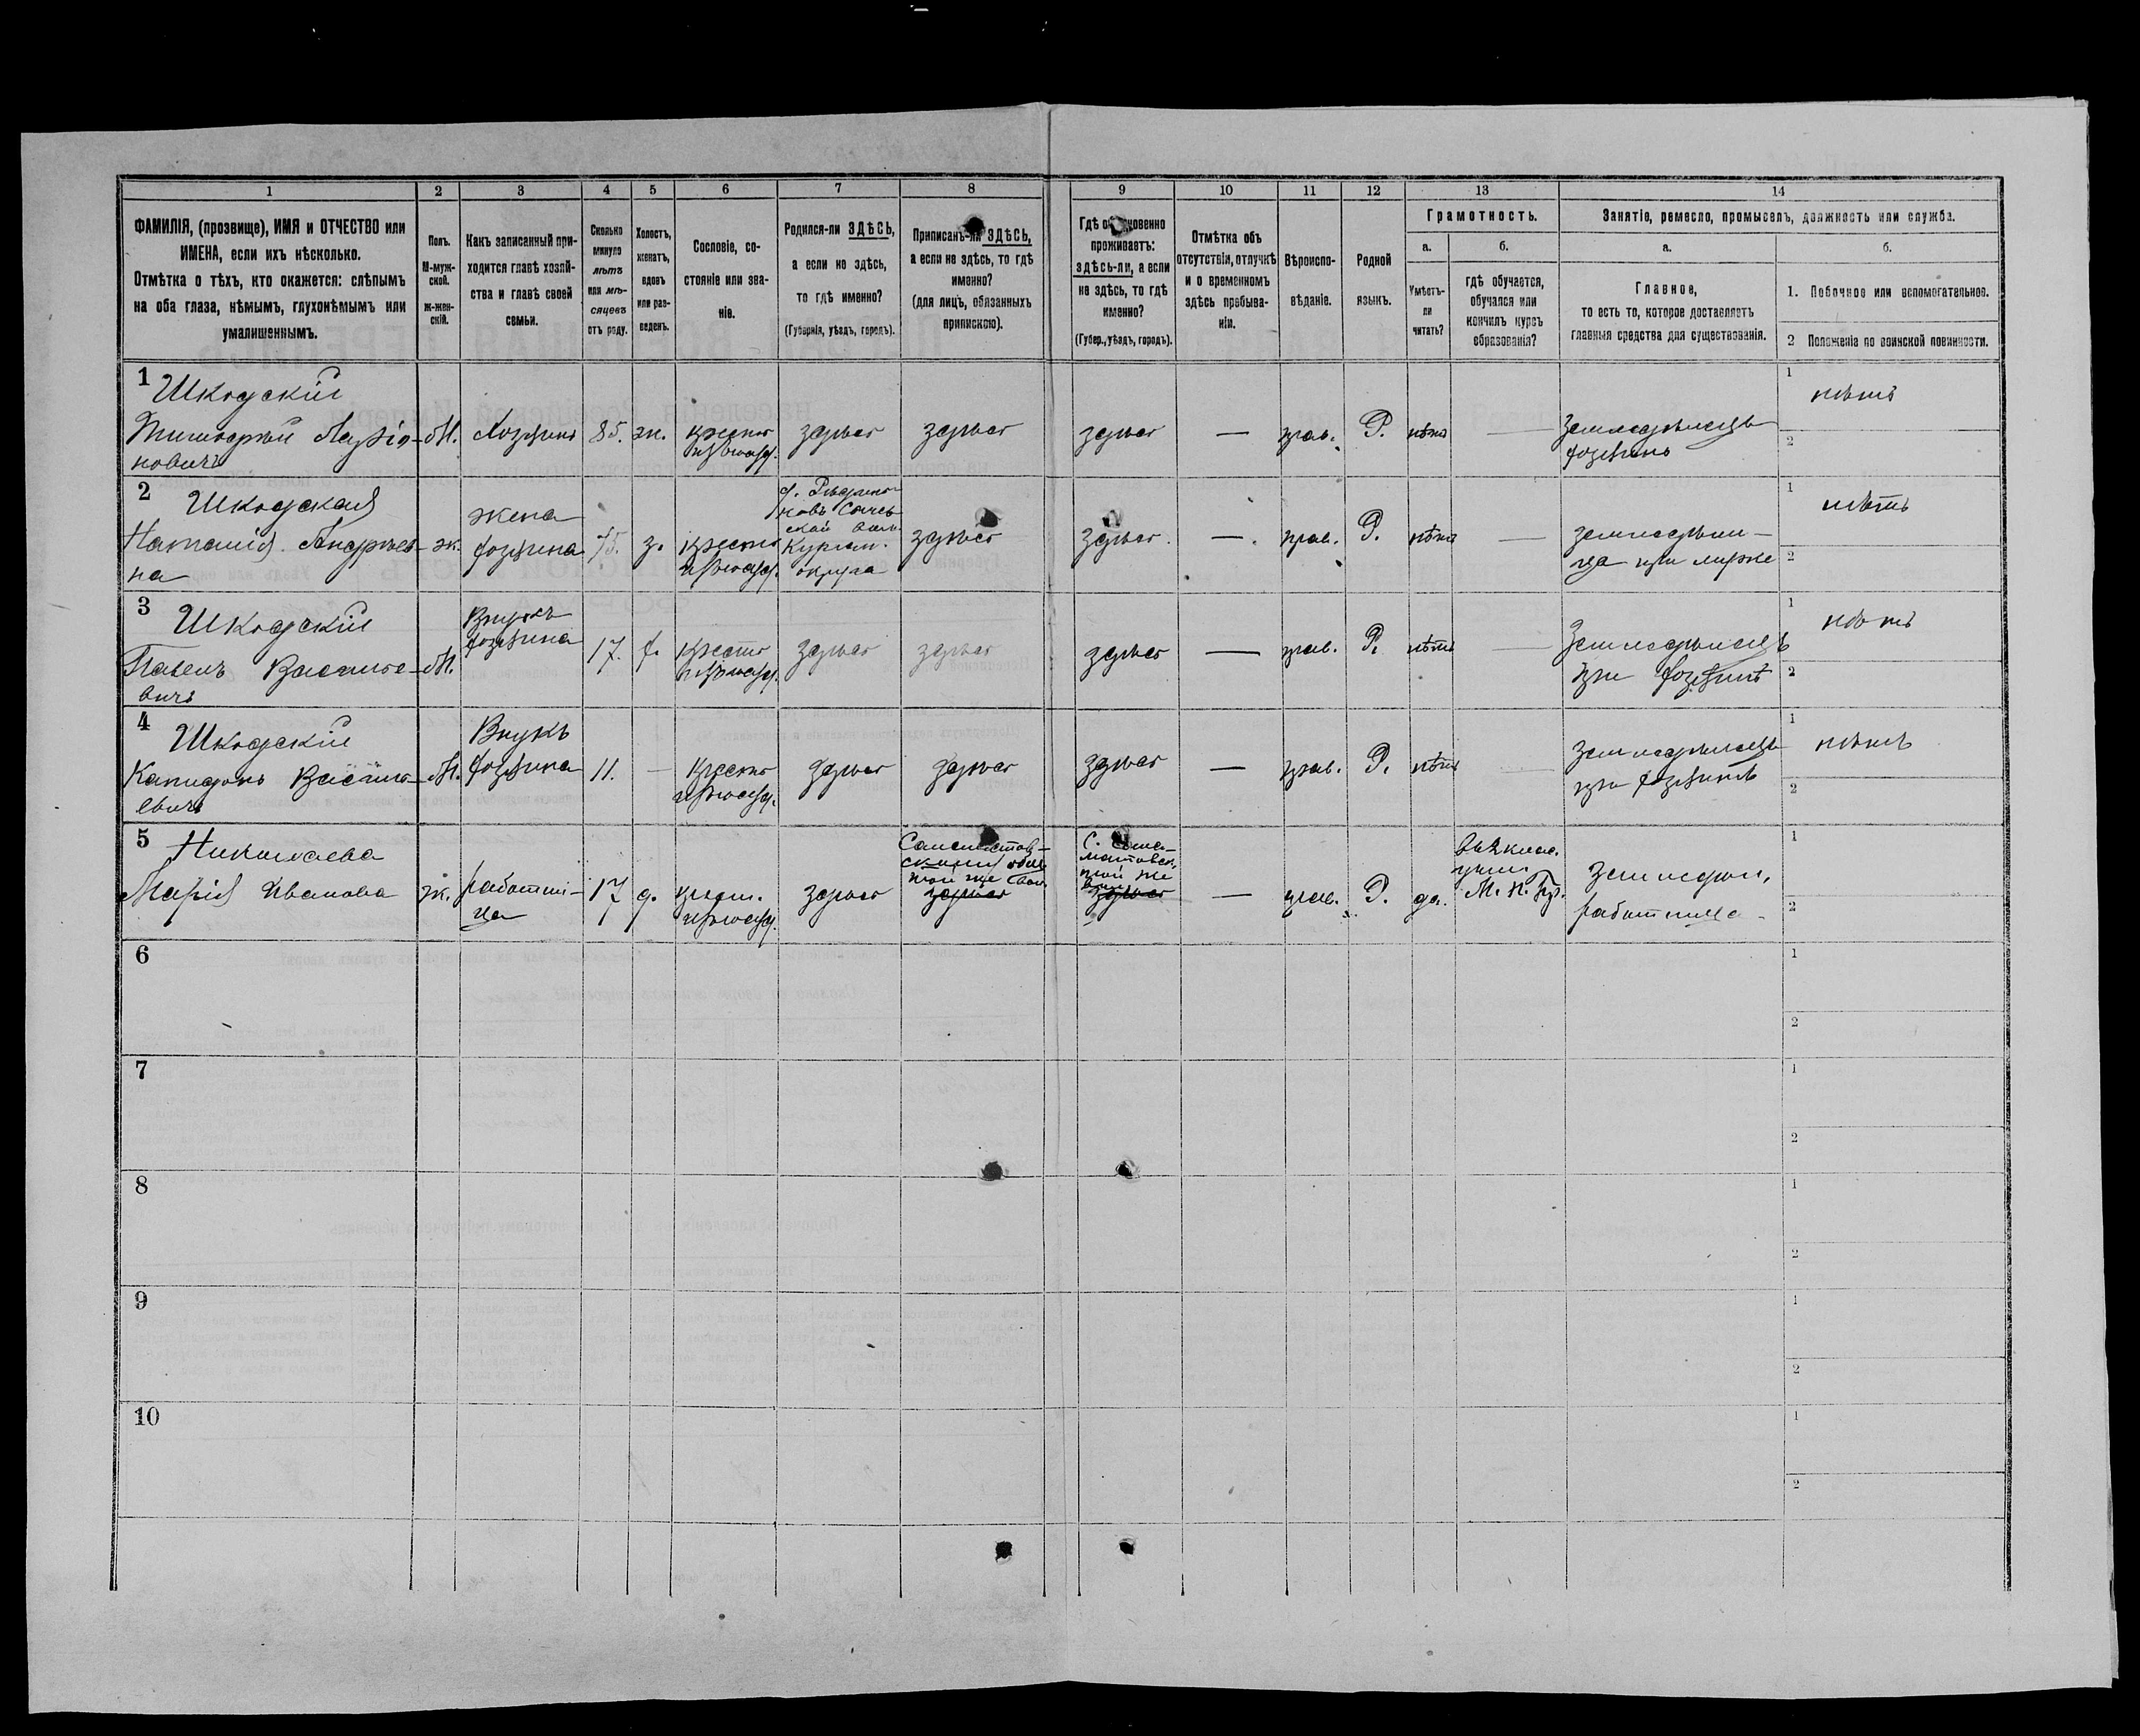 1 2 3 4 5 6 7 8 9 10 11 12 13 14
ФАМИЛІЯ, (прозвище), ИМЯ и ОТЧЕСТВО или
ИМЕНА, если ихъ нѣсколько.
Отмѣтка о тѣхъ, кто окажется: слѣпымъ
на оба глаза, нѣмымъ, глухонѣмымъ или
умалишеннымъ.
Полъ.
М-муж-
ской.
ж-жен-
скій.
Какъ записанный при-
ходится главѣ хозяй-
ства и главѣ своей
семьи.
Сколько
минуло
лѣтъ
или мѣ-
сяцевъ
отъ роду.
Холостъ,
женатъ,
вдовъ
или раз-
веденъ.
Сословіе, со-
стояніе или зва-
ніе.
Родился-ли ЗДѢСЬ,
а если не здѣсь,
то гдѣ именно?
(Губернія, уѣздъ, городъ).
Приписанъ-ли ЗДѢСЬ,
а если не здѣсь, то гдѣ
именно?
(для лицъ, обязанныхъ
припискою).
Гдѣ обыкновенно
проживаетъ:
ЗДѢСЬ-ЛИ, а если
не здѣсь, то гдѣ
именно?
(Губер., уѣздъ, городъ).
Отмѣтка объ
отсутствіи, отлучкѣ
и о временномъ
здѣсь пребыва-
ніи.
Вѣроиспо-
вѣданіе.
Родной
языкъ.
Грамотность.
а.
Умѣетъ-
ли
читать?
б.
гдѣ обучается,
обучался или
кончилъ курсъ
образованія?
Занятіе, ремесло, промыселъ, должность или служба.
а.
Главное,
то есть то, которое доставляетъ
главныя средства для существованія.
б.
1. Побочное или вспомогательное.
2 Положеніе по воинской повинности.
1
Шкодскій
новичъ
М.
Хозяинъ
85.
ж.
здѣсь
здѣсь
здѣсь
—
прав.
Р.
нѣтъ
—
Земледѣлецъ
хозяинъ
1 нѣтъ
2
2
Шкодская
Наталія Андрѣев-
на
ж.
жена
хозяина
75.
з.
Курган.
округа
здѣсь
здѣсь.
—.
прав.
Р.
нѣтъ
—
земледѣли-
ца при мужѣ
1 нѣтъ
2
3
Шкодскій
Павелъ Василье-
вичъ
М.
Внукъ
хозяина
17.
х.
здѣсь
здѣсь
здѣсь
—
прав.
Р.
нѣтъ
—
Земледѣлецъ
при хозяинѣ
1 нѣтъ
2
4
Шкодскій
Капидонъ Василь-
евичъ
М.
Внукъ
хозяина
11.
—
здѣсь
здѣсь
здѣсь
—
прав.
Р.
нѣтъ
—
Земледѣлецъ
при хозяинѣ
1 нѣтъ
2
5
Николаева
Марія Иванова
ж.
работни-
ца
17
д.
здѣсь
здѣсь
здѣсь
—
прав.
Р.
да.
земледѣл.
работница
1
2
6
1
2
7
1
2
8
1
2
9
1
2
10
1
2